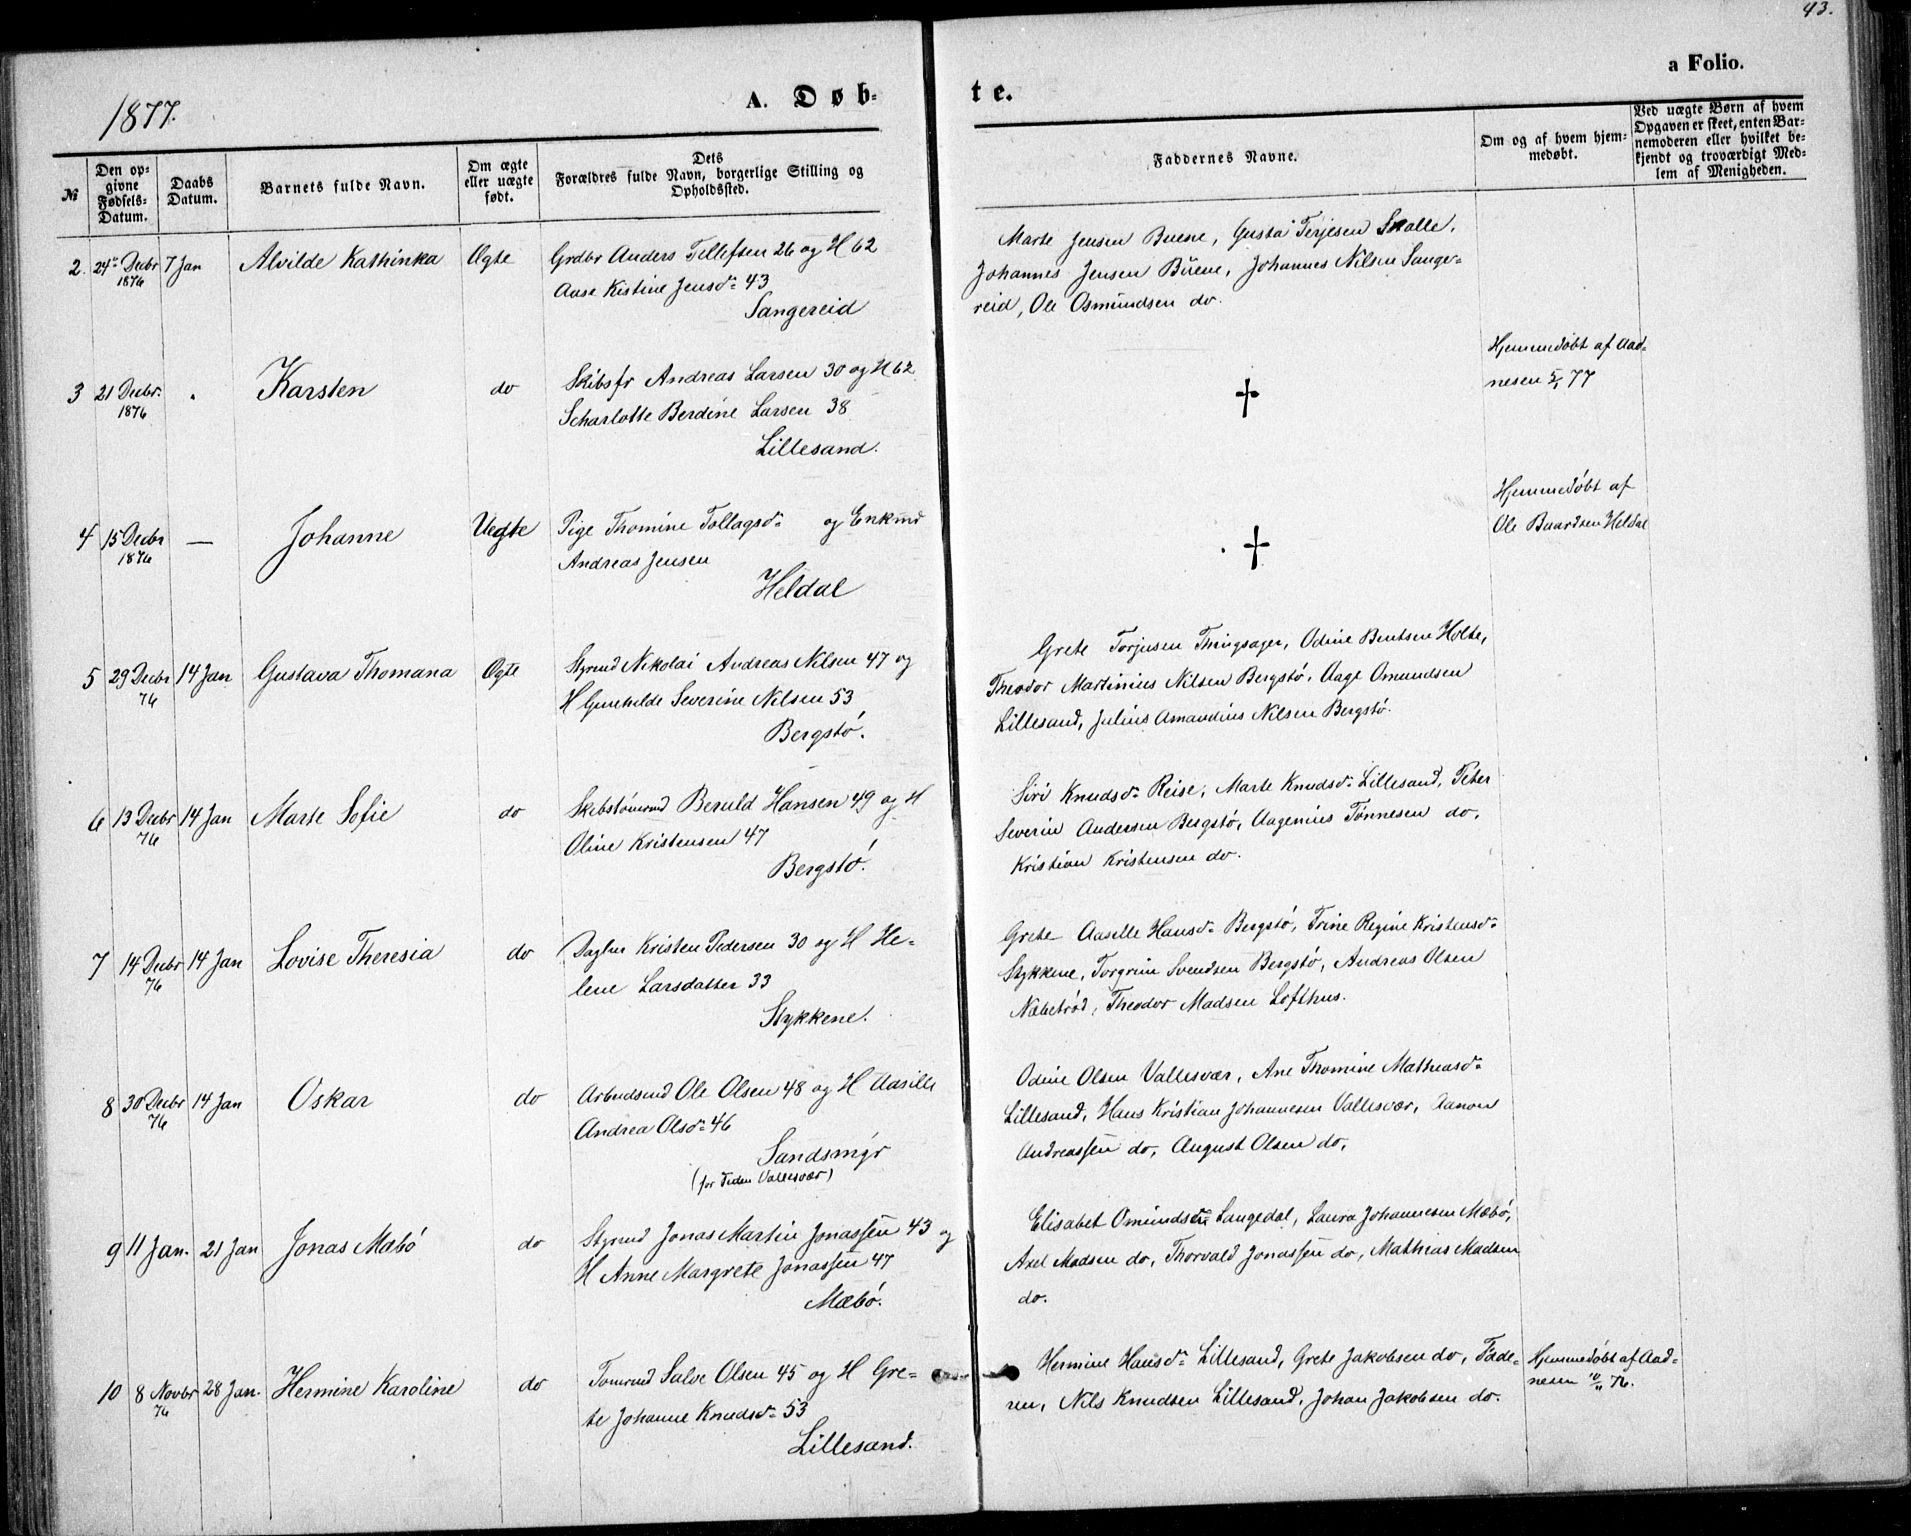 43.
a Folio.
1877.
A. Døb-
te.
№
Den op-
givne
Fødsels-
Datum.
Daabs
Datum.
Barnets fulde Navn.
Om ægte
eller uægte
født.
Dets
Forældres fulde Navn, borgerlige Stilling og
Opholdssted.
Faddernes Navne.
Om og af hvem hjem-
medøbt.
Ved uægte Børn af hvem
Opgaven er skeet, enten Bar-
nemoderen eller hvilket be-
kjendt og troværdigt Med-
lem af Menigheden.
2. 24de Decbr 1876 7 Jan Alvilde Kathinka Ægte Grdbr Anders Tellefsen 26 og H 62
Aase Kistine Jensd: 43
Sangereid
Marte Jensen Buene, Gusta Terjesen Skalle,
Johannes Jensen Buene, Johannes Nilsen Sange-
reid, Ole Osmundsen do.
3 21 Decbr. 1876 . Karsten do Skibsfr Andreas Larsen 30 og H 62
Scharlotte Berdine Larsen 38
Lillesand.
†
Hjemmedøbt af Aad-
nesen 5/1 77
4 15 Decbr 1876 — Johanne Uegte Pige Thomine Tollagsd: og Enkmd
Andreas Jensen
Heldal
†
Hjemmedøbt af
Ole Baardsen Heldal
5 29 Decbr 76 14 Jan Gustava Thomana Ægte Styrmd Nikolai Andreas Nilsen 47 og
H Gunehilde Severine Nilsen 53
Bergstø.
Grete Torjusen Thingsager, Odine Bentsen Holte,
Theodor Martinius Nilsen Bergstø, Aage Omundsen
Lillesand, Julius Amandius Nilsen Bergstø.
6 13 Decbr 76 14 Jan Marte Sofie do Skibstømmd Beruld Hansen 49 og H
Oline Kristensen 47
Bergstø.
Siri Knudsd: Reise, Marte Knudsd: Lillesand, Peter
Severin Andersen Bergstø, Aagenius Tønnesen do,
Kristian Kristensen do.
7 14 Decbr 76 14 Jan Lovise Theresia do Daglnr Kristen Pedersen 30 og H He-
lene Larsdatter 33
Stykkene.
Grete Aaselle Hansd: Bergstø, Trine Regine Kristensd:
Stykkene, Torgrim Svendsen Bergstø, Andreas Olsen
Næbetrød, Theodor Madsen Lofthus.
8 30 Decbr 76 14 Jan Oskar do Arbeidsmd Ole Olsen 48 og H Aasille
Andrea Olsd: 46
Sandsmyr
(for Tiden Vallesvær)
Odine Olsen Vallesvær, Ane Thomine Mathiasd:
Lillesand, Hans Kristian Johannesen Vallesvær, Aanon
Andreassen do, August Olsen do,
9 11 Jan. 21 Jan Jonas Mabø do Styrmd Jonas Martin Jonassen 43 og
H Anne Margrete Jonassen 47
Mæbø.
Elisabet Omundsen Langedal, Laura Johannesen Mæbø,
Axel Madsen do, Thorvald Jonassen do, Mathias Madsen
do.
10 8 Novbr 76 28 Jan. Hermine Karoline do Tømmd Salve Olsen 45 og H Gre-
te Johanne Knudsd: 53
Lillesand.
Hermine Hansd: Lillesand, Grete Jakobsen do, Fade-
ren, Nils Knudsen Lillesand, Johan Jakobsen do.
Hjemmedøbt af Aad-
nesen 10/11 76.